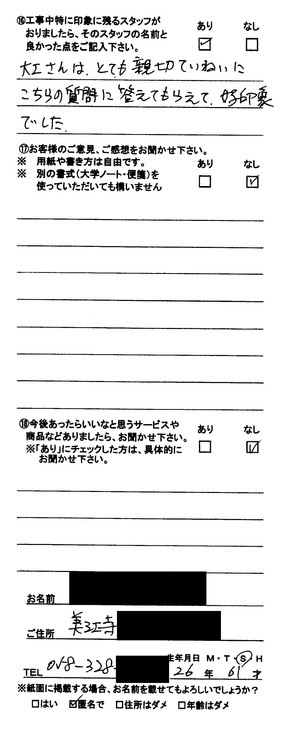 ⑯工事中特に印象に残るスタッフが
おりましたら、そのスタッフの名前と
良かった点をご記入下さい。
あり なし
☑ □
大工さんは、とても親切ていねいに
こちらの質問に答えてもらえて、好印象
でした。
⑰お客様のご意見、ご感想をお聞かせ下さい。
※ 用紙や書き方は自由です。
※ 別の書式(大学ノート・便箋)を
使っていただいても構いません
あり なし
□ ☑
⑱今後あったらいいなと思うサービスや
商品などありましたら、お聞かせ下さい。
※「あり」にチェックした方は、具体的に
お聞かせ下さい。
あり なし
□ ☑
お名前
ご住所 美江寺
生年月日 M・T・S・H
TEL 058-328- 26 年 61 才
※紙面に掲載する場合、お名前を載せてもよろしいでしょうか?
□はい ☑匿名で □住所はダメ □年齢はダメ